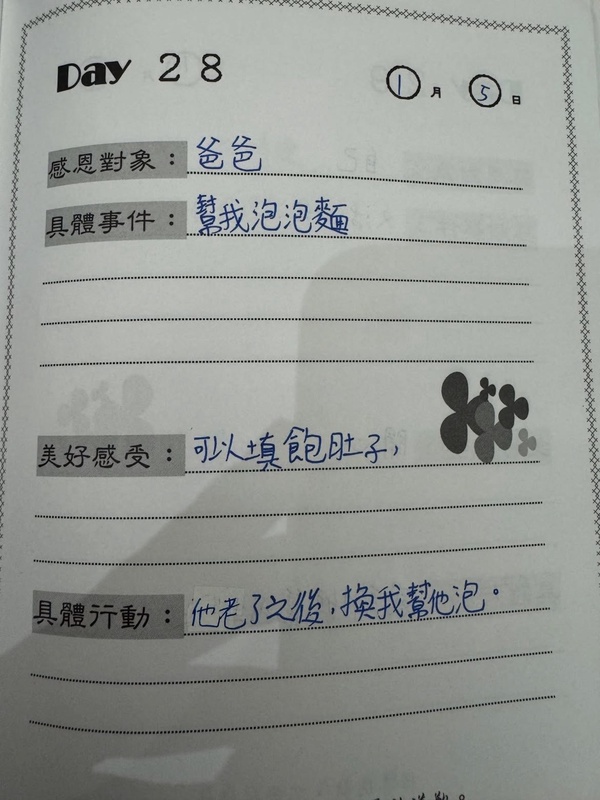 Day 28
1月5日
感恩對象：爸爸
具體事件：幫我泡泡麵
美好感受：可以填飽肚子，
具體行動：他老了之後，換我幫他泡。